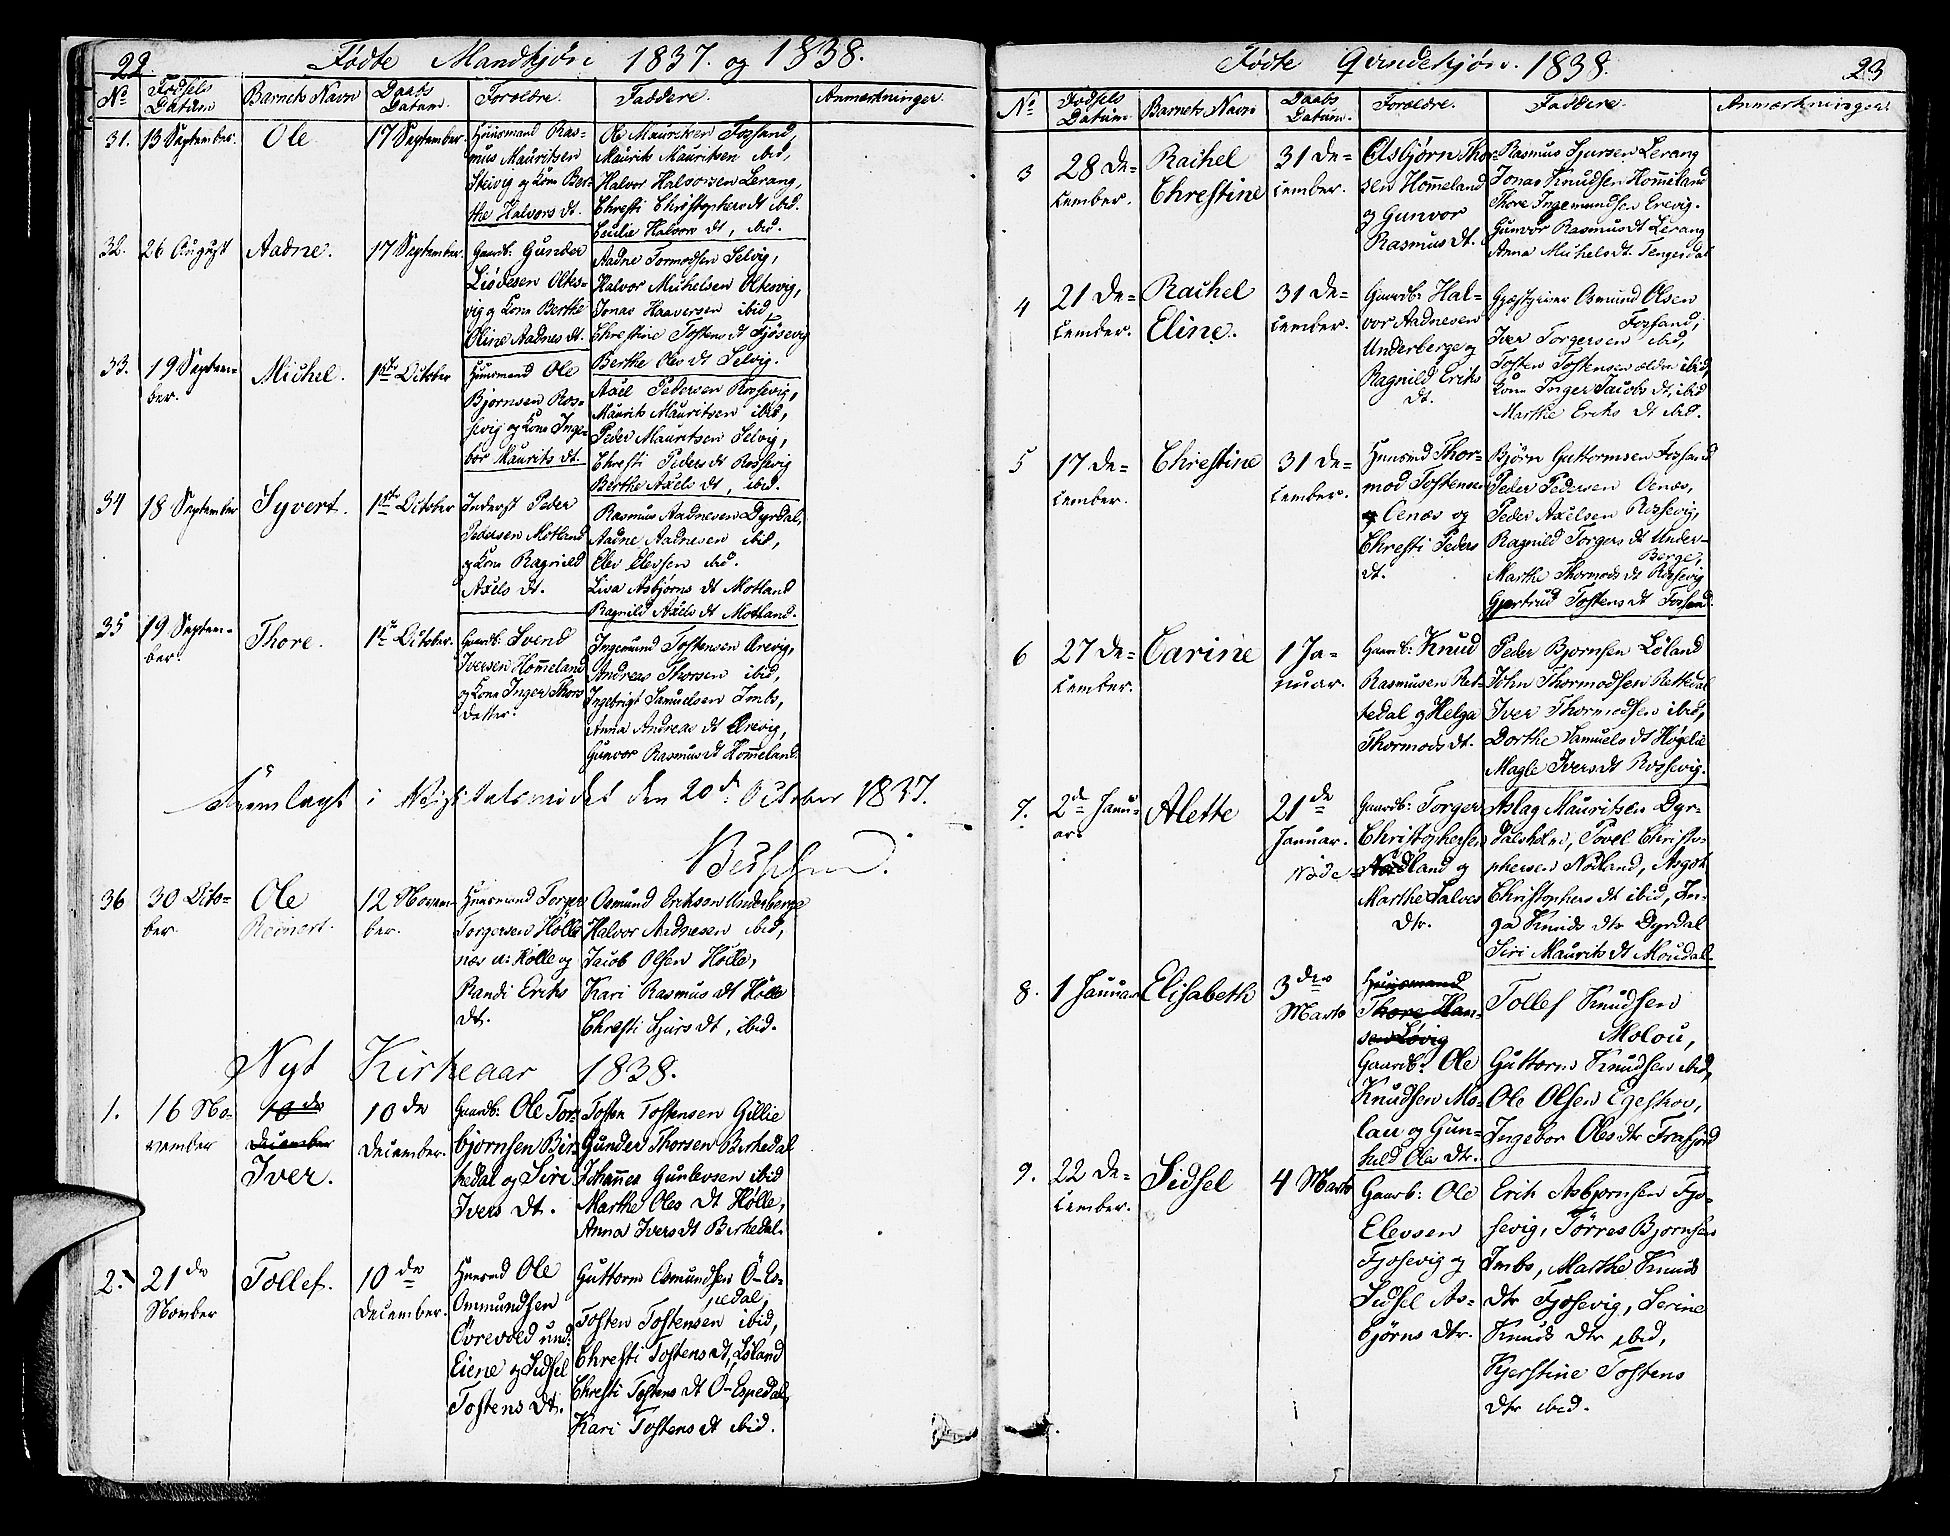 22
Fødte Mandkjøn 1837. og 1838.
No Fødsels Datum Barnets Navn Daabs Datum. Forældre. Faddere. Anmærkninger.
31. 13 September. Ole 17 September.
Huusmand Ras-
mus Mauritsen
og Kona Ber-
the Halvors dt.
Mauritsen Fossand,
Maurits Mauritsen ibid,
Halvor Halvorsen Lerang,
Christi Christophers dt ibid.
Cecilie Halvors dt, ibid.
32. 26 August Aadne. 17 September.
Gaardb: Gunder
Oltes-
vig og Kona Berthe
Oline Aadnes dt.
Aadne Tormodsen Selvig,
Halvor Michelsen Oltesvig,
Jonas Haaversen ibid,
Christine Tostens dt Fjøsevig
Berthe Oles dt Selvig.
33. 19 Septem-
ber.
Michel. 1ste October
Huusmand Ole
Bjørnsen Ros-
sevig og Kona Inge-
bor Maurits dt.
Axel Pedersen Rossevig,
Maurits Mauritsen ibid,
Peder Mauritsen Selvig,
Christi Peders dt Rossevig
Berthe Axels dt, ibid.
34 18 September Syvert. 1ste October
Inderst Peder
Pedersen Motland
og Kona Ragnild
Axels dt.
Rasmus Aadnesen Dyrdal,
Aadne Aadnesen ibid,
Elev Elevsen ibid.
Lisa Asbjørns dt Motland
Ragnild Axels dt Motland.
35 19 Septem-
ber.
Thore. 1ste October.
Gaardb: Svend
Iversen Hommeland
og Kona Inger Thors
datter.
Ingemund Tostensen Erevig,
Andreas Thorsen ibid,
Ingebrigt Samuelsen Imbs,
Anna Andreas dt Erevig,
Gunvor Rasmus dt Hommeland.
Fremlagt i den 20de October 1837.
36 30 Octo-
ber.
Ole
Reinert.
12 Novem-
ber.
Huusmand Torger
Torgersen Hölle
og
Randi Eriks
dt.
Osmund Eriksen Underberge
Halvor Aadnesen ibid,
Jacob Olsen Hölle,
Kari Rasmus dt Hölle
Christi Sjurs dt, ibid.
Nyt Kirkeaar 1838.
1. 16 No-
vember
10de
December
Iver.
10de
December.
Gaardb: Ole Tor-
bjørnsen Bir-
kedal og Siri
Ivers dt.
Tosten Tostensen Gillie
Gunder Thorsen Birkedal
Johannes Gunlevsen ibid
Marthe Oles dt Hölle,
Anna Ivers dt Birkedal.
2. 21de
Novber
Tollef. 10de
December.
Huusmd Ole
Ommundsen
Övrevold und:
Eiene og Sidsel
Tostens dt.
Guttorm Osmundsen Ö-Es-
pedal,
Tosten Tostensen ibid,
Christi Tostens dt, Løland
Christi Tostens dt Ö-Espedal,
Kari Tostens dt ibid.
23
Fødte Qvindekjøn. 1838.
No Fødsels Datum Barnets Navn Daabs Datum. Forældre. Faddere. Anmærkninger.
3 28 De-
cember.
Rachel
Christine
31 De-
cember.
Asbjørn Thor-
sen Hommeland
og Gunvor
Rasmus dt.
Rasmus Sjursen Lerang
Jonas Knudsen Hommeland
Thore Ingemundsen Erevig.
Gunvor Rasmus dt Lerang
Anna Michels dt. Tengesdal
4 21 De-
cember.
Rachel
Eline.
31 De-
cember.
Gaardb: Hal-
vor Aadnesen
Underberge og
Ragnild Eriks
dt.
Gjæstgiver Osmund Olsen
Fossand,
Iver Torgersen ibid,
Tosten Tostensen ældre ibid,
Kona Inger Jacobs dt, ibid
Marthe Eriks dt ibid.
5 17 De-
cember.
Christine 31 De-
cember.
Huusmd Thor-
mod Tostensen
og Oenæs og
Christi Peders
dt.
Bjørn Guttormsen Fossand
Peder Pedersen Oenæs,
Peder Axelsen Rossevig,
Ragnild Torgers dt Under-
Berge,
Marthe Thormods dt Rossevig
Gjertrud Tostens dt Fossand.
6 27 De-
cember.
Carine 1 Ja-
nuar.
Gaardb: Knud
Rasmusen Ret-
tedal og Helga
Thormods dt.
Peder Bjørnsen Løland
John Thormodsen Rettedal
Iver Thormodsen ibid,
Dorthe Samuels dt Høgelie
Magle Ivers dt Rossevig.
7. 2de Janu-
ar.
Alette 21de
Januar.
Gaardb: Torger
Christophersen
Nodland og
Marthe Salves
dtr.
Aslag Mauritsen Dyr-
dalsholm, Povel Christo-
phersen Nodland, Asgot
Christophers dt ibid, In-
ga Knuds dtr Dyrdal
Siri Maurits dt Moudal.
8. 1 Januar Elisabeth 3die
Marts
Huusmand
Thore Han-
sen Løvig
Gaardb: Ole
Knudsen Mo-
lau og Gun-
hild Oles dtr.
Tollef Knudsen
Molou,
Guttorm Knudsen ibid,
Ole Olsen Egeskov,
Ingebor Oles dtr Frafjord
9. 22 De-
cember.
Sidsel 4 Marts
Gaardb: Ole
Elevsen
Fjosevig og
Sidsel As-
bjørns dtr.
Erik Asbjørnsen Fjo-
sevig, Tørres Bjørnsen
Imbs, Marthe Knuds
dtr Fjosevig, Serine
Knuds dtr ibid,
Kjerstine Tostens
dtr ibid.